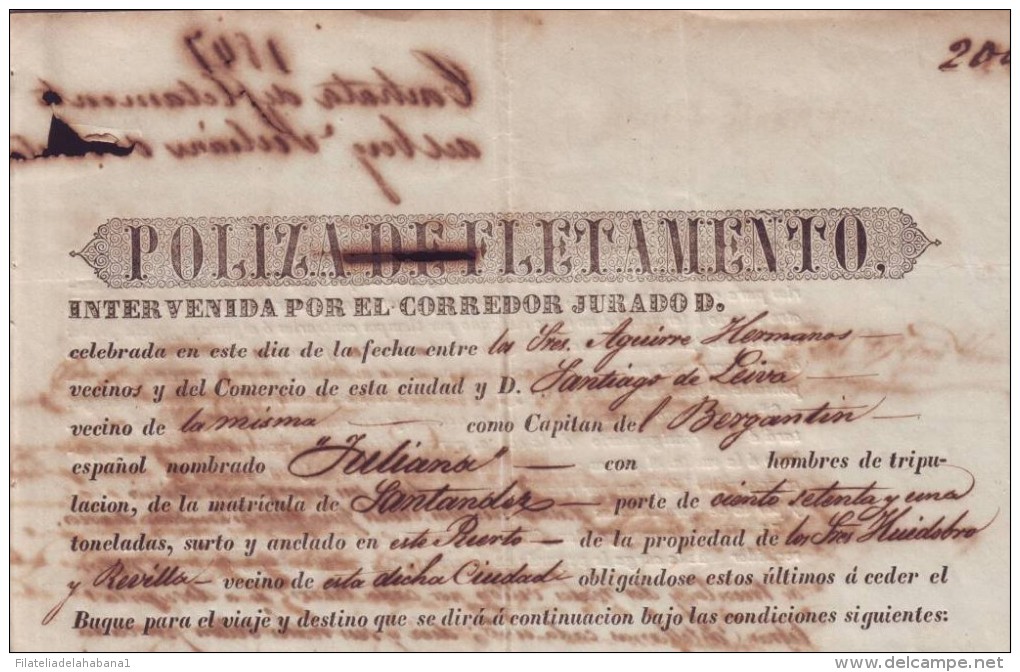 1847
Contrata de fletamento
del berg Juliana
POLIZA DE FLETAMENTO,
INTERVENIDA POR EL CORREDOR JURADO D.
celebrada en este dia de la fecha entre los Sres. Aguirre Hermanos
vecinos y del Comercio de esta ciudad y D. Santiago de Leiva
vecino de la misma como Capitan del Bergantin
español nombrado "Juliana" con hombres de tripu-
lacion, de la matrícula de Santander porte de ciento setenta y una
toneladas, surto y anclado en este Puerto de la propiedad de los Sres Huidobro
y Revilla vecino de esta dicha Ciudad obligándose estos últimos á ceder el
Buque para el viaje y destino que se dirá á continuacion bajo las condiciones siguientes:
Filateliadelahabana1
www.delcampe.net